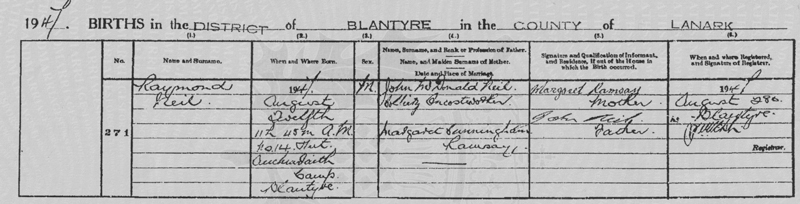 1947. BIRTHS in the DISTRICT of BLANTYRE in the COUNTY of LANARK
(1.) (2.) (3.) (4.) (5.) (6.)
No. Name and Surname. When and Where Born. Sex. Name, Surname, and Rank or Profession of Father. Name, and Maiden Surname of Mother. Date and Place of Marriage. Signature and Qualification of Informant, and Residence, if out of the House in which the Birth occurred. When and where Registered, and Signature of Registrar.
271
Raymond
Neil
1947.
August
Twelfth
11h 45m A.M.
No 14 Hut,
Auchinraith
Camp,
Blantyre.
M.
John McDonald Neil
Margaret Cunningham
Ramsay
Margaret Ramsay
Mother
John Neil
Father.
1947
August 28
At Blantyre.
Registrar.